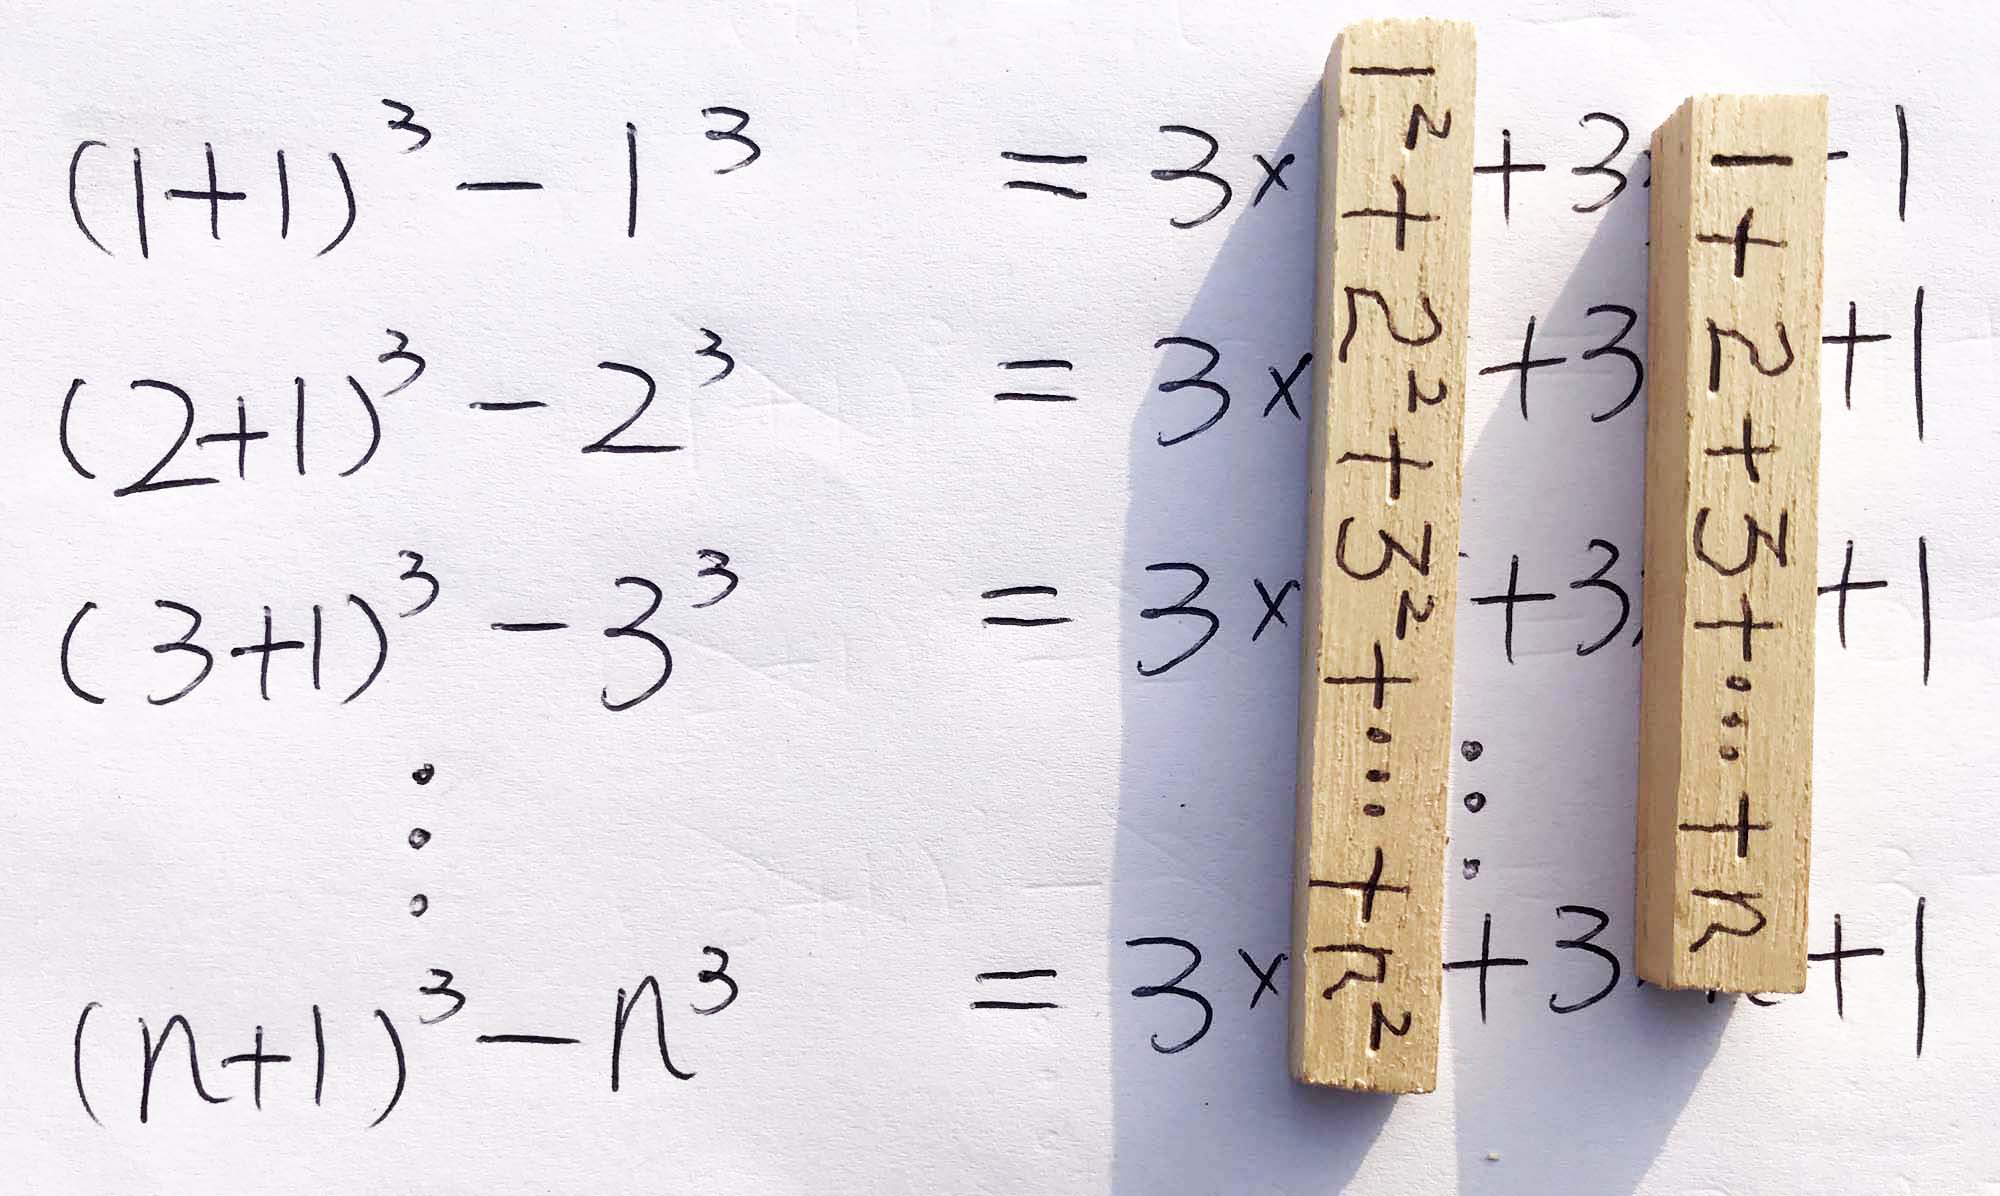 (1+1)³ − 1³ = 3× +3 1
(2+1)³ − 2³ = 3× +3 +1
(3+1)³ − 3³ = 3× +3 +1
⋮ ⋮
(n+1)³ − n³ = 3× +3 +1
1²+2²+3²+⋯+n²
1+2+3+⋯+n